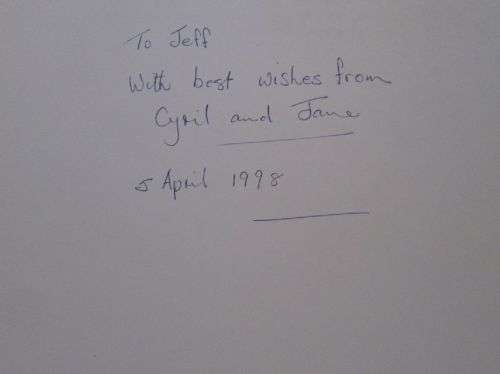 To Jeff
With best wishes from
Cyril and Jane
5 April 1998